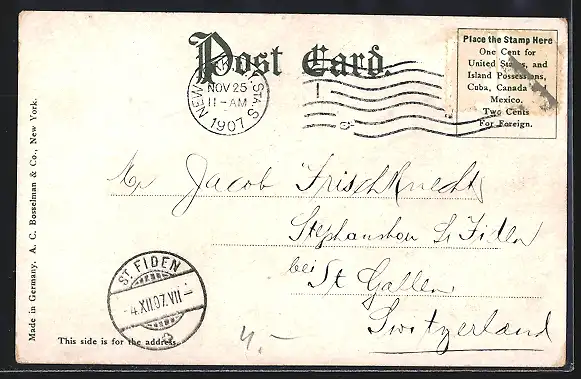 Post Card.
Place the Stamp Here
One Cent for
United States, and
Island Possessions,
Cuba, Canada
Mexico.
Two Cents
For Foreign.
NEW YORK STA. S
NOV 25
11-AM
1907
Mr Jacob Frischknecht
Stephanshorn St Fiden
bei St Gallen
Switzerland
ST. FIDEN
-4.XII.07.VII-
4.-
This side is for the address.
Made in Germany. A. C. Bosselman & Co., New York.